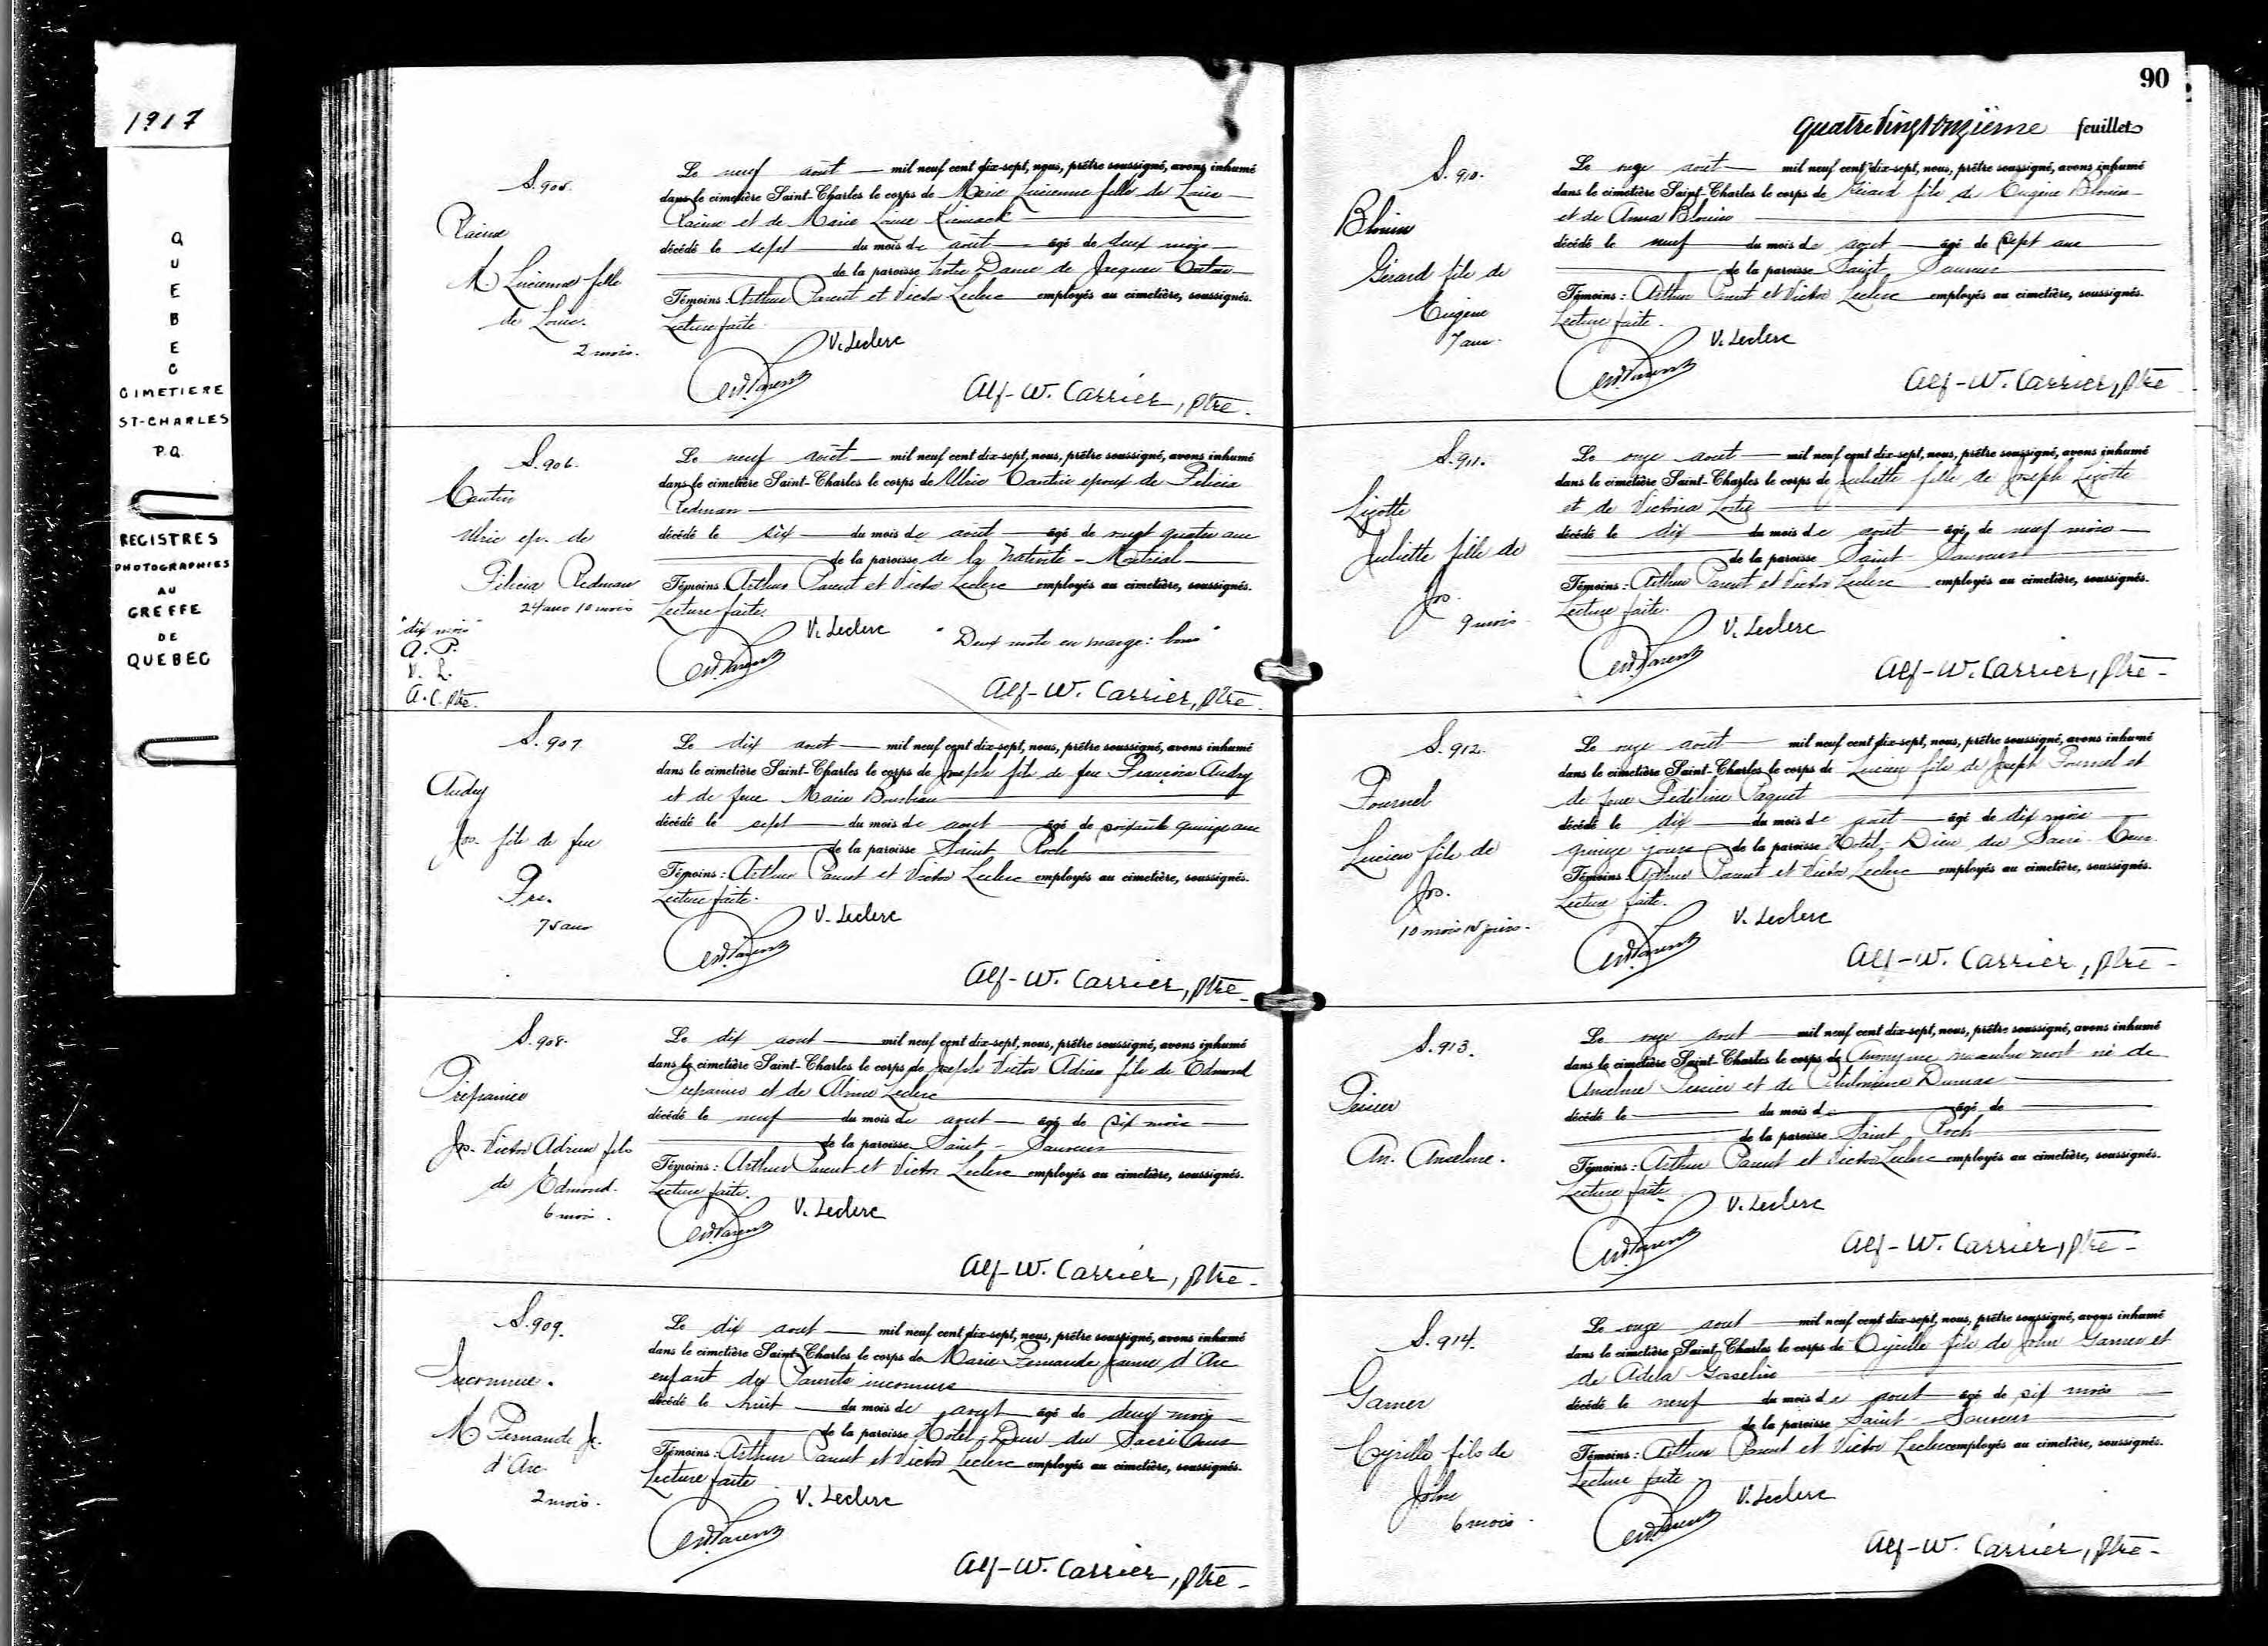 1917
QUEBEC
CIMETIERE
ST-CHARLES
P.Q.
REGISTRES
PHOTOGRAPHIES
AU
GREFFE
DE
QUEBEC
S. 905.
Racine
M. Lucienne fille
de Louis.
2 mois.
Le neuf août mil neuf cent dix-sept, nous, prêtre soussigné, avons inhumé
dans le cimetière Saint-Charles le corps de Marie Lucienne fille de Louis
Racine et de Marie Louise
décédé le sept du mois de août âgé de deux mois
de la paroisse Notre Dame de Jacques Cartier
Témoins : Arthur Parent et Victor Leclerc employés au cimetière, soussignés.
Lecture faite.
V. Leclerc
Art. Parent
Alf-W. Carrier, ptre.
S. 906.
Cantin
Ulric ep. de
Félicia Redman
24 ans 10 mois
"dix mois"
A. P.
V. L.
A. C. ptre.
Le neuf août mil neuf cent dix-sept, nous, prêtre soussigné, avons inhumé
dans le cimetière Saint-Charles le corps de Ulric Cantin epoux de Félicia
Redman
décédé le six du mois de août âgé de vingt quatre ans
de la paroisse de la Nativité - Montréal
Témoins : Arthur Parent et Victor Leclerc employés au cimetière, soussignés.
Lecture faite.
V. Leclerc "Deux mots en marge : bons"
Art. Parent
Alf-W. Carrier, ptre.
S. 907
Audy
Jos. fils de feu
Frs.
75 ans
Le dix août mil neuf cent dix-sept, nous, prêtre soussigné, avons inhumé
dans le cimetière Saint-Charles le corps de Joseph fils de feu François Audy
et de feue Marie
décédé le sept du mois de aout âgé de soixante quinze ans
de la paroisse Saint Roch
Témoins : Arthur Parent et Victor Leclerc employés au cimetière, soussignés.
Lecture faite.
V. Leclerc
Art. Parent
Alf-W. Carrier, ptre.
S. 908.
Préfontaine
Jos. Victor Adrien fils
de Edmond.
6 mois.
Le dix aout mil neuf cent dix-sept, nous, prêtre soussigné, avons inhumé
dans le cimetière Saint-Charles le corps de Joseph Victor Adrien fils de Edmond
et de Leclerc
décédé le neuf du mois de aout âgé de six mois
de la paroisse Saint-Sauveur
Témoins : Arthur Parent et Victor Leclerc employés au cimetière, soussignés.
Lecture faite.
V. Leclerc
Art. Parent
Alf-W. Carrier, ptre.
S. 909.
Inconnue.
M. Fernande Je.
d'Arc
2 mois.
Le dix aout mil neuf cent dix-sept, nous, prêtre soussigné, avons inhumé
dans le cimetière Saint-Charles le corps de Marie Fernande Jeanne d'Arc
enfant de Parents inconnus
décédé le huit du mois de aout âgé de deux mois
de la paroisse Hôtel-Dieu du Sacré Cœur
Témoins : Arthur Parent et Victor Leclerc employés au cimetière, soussignés.
Lecture faite
V. Leclerc
Art. Parent
Alf-W. Carrier, ptre.
90
quatre vingt onzième feuillet
S. 910.
Blouin
Gérard fils de
Eugène
7 ans.
Le onze août mil neuf cent dix-sept, nous, prêtre soussigné, avons inhumé
dans le cimetière Saint-Charles le corps de Gérard fils de Eugène Blouin
et de Anna Blouin
décédé le neuf du mois de aout âgé de sept ans
de la paroisse Saint Sauveur
Témoins : Arthur Parent et Victor Leclerc employés au cimetière, soussignés.
Lecture faite.
V. Leclerc
Art. Parent
Alf-W. Carrier, ptre
S. 911.
Lizotte
Juliette fille de
Jos.
9 mois
Le onze aout mil neuf cent dix-sept, nous, prêtre soussigné, avons inhumé
dans le cimetière Saint-Charles le corps de Juliette fille de Joseph Lizotte
et de Victoria Lortie
décédé le dix du mois de aout âgé de neuf mois
de la paroisse Saint-Sauveur
Témoins : Arthur Parent et Victor Leclerc employés au cimetière, soussignés.
Lecture faite.
V. Leclerc
Art. Parent
Alf-W. Carrier, ptre.
S. 912.
Fournel
Lucien fils de
Jos.
10 mois 15 jours.
Le onze août mil neuf cent dix-sept, nous, prêtre soussigné, avons inhumé
dans le cimetière Saint-Charles le corps de Lucien fils de Joseph Fournel et
de feue Paquet
décédé le dix du mois de août âgé de dix mois
quinze jours de la paroisse Hotel-Dieu du Sacré-Cœur
Témoins : Arthur Parent et Victor Leclerc employés au cimetière, soussignés.
Lecture faite.
V. Leclerc
Art. Parent
Alf-W. Carrier, ptre
S. 913.
An. Anselme.
Le onze aout mil neuf cent dix-sept, nous, prêtre soussigné, avons inhumé
dans le cimetière Saint-Charles le corps de Anonyme masculin mort né de
Anselme et de Dumas
décédé le du mois d âgé de
de la paroisse Saint Roch
Témoins : Arthur Parent et Victor Leclerc employés au cimetière, soussignés.
Lecture faite
V. Leclerc
Art. Parent
Alf-W. Carrier, ptre
S. 914.
Garner
Cyrille fils de
John
6 mois
Le onze aout mil neuf cent dix-sept, nous, prêtre soussigné, avons inhumé
dans le cimetière Saint-Charles le corps de Cyrille fils de John Garner et
de Adela Gosselin
décédé le neuf du mois de aout âgé de six mois
de la paroisse Saint-Sauveur
Témoins : Arthur Parent et Victor Leclerc employés au cimetière, soussignés.
Lecture faite
V. Leclerc
Art. Parent
Alf-W. Carrier, ptre